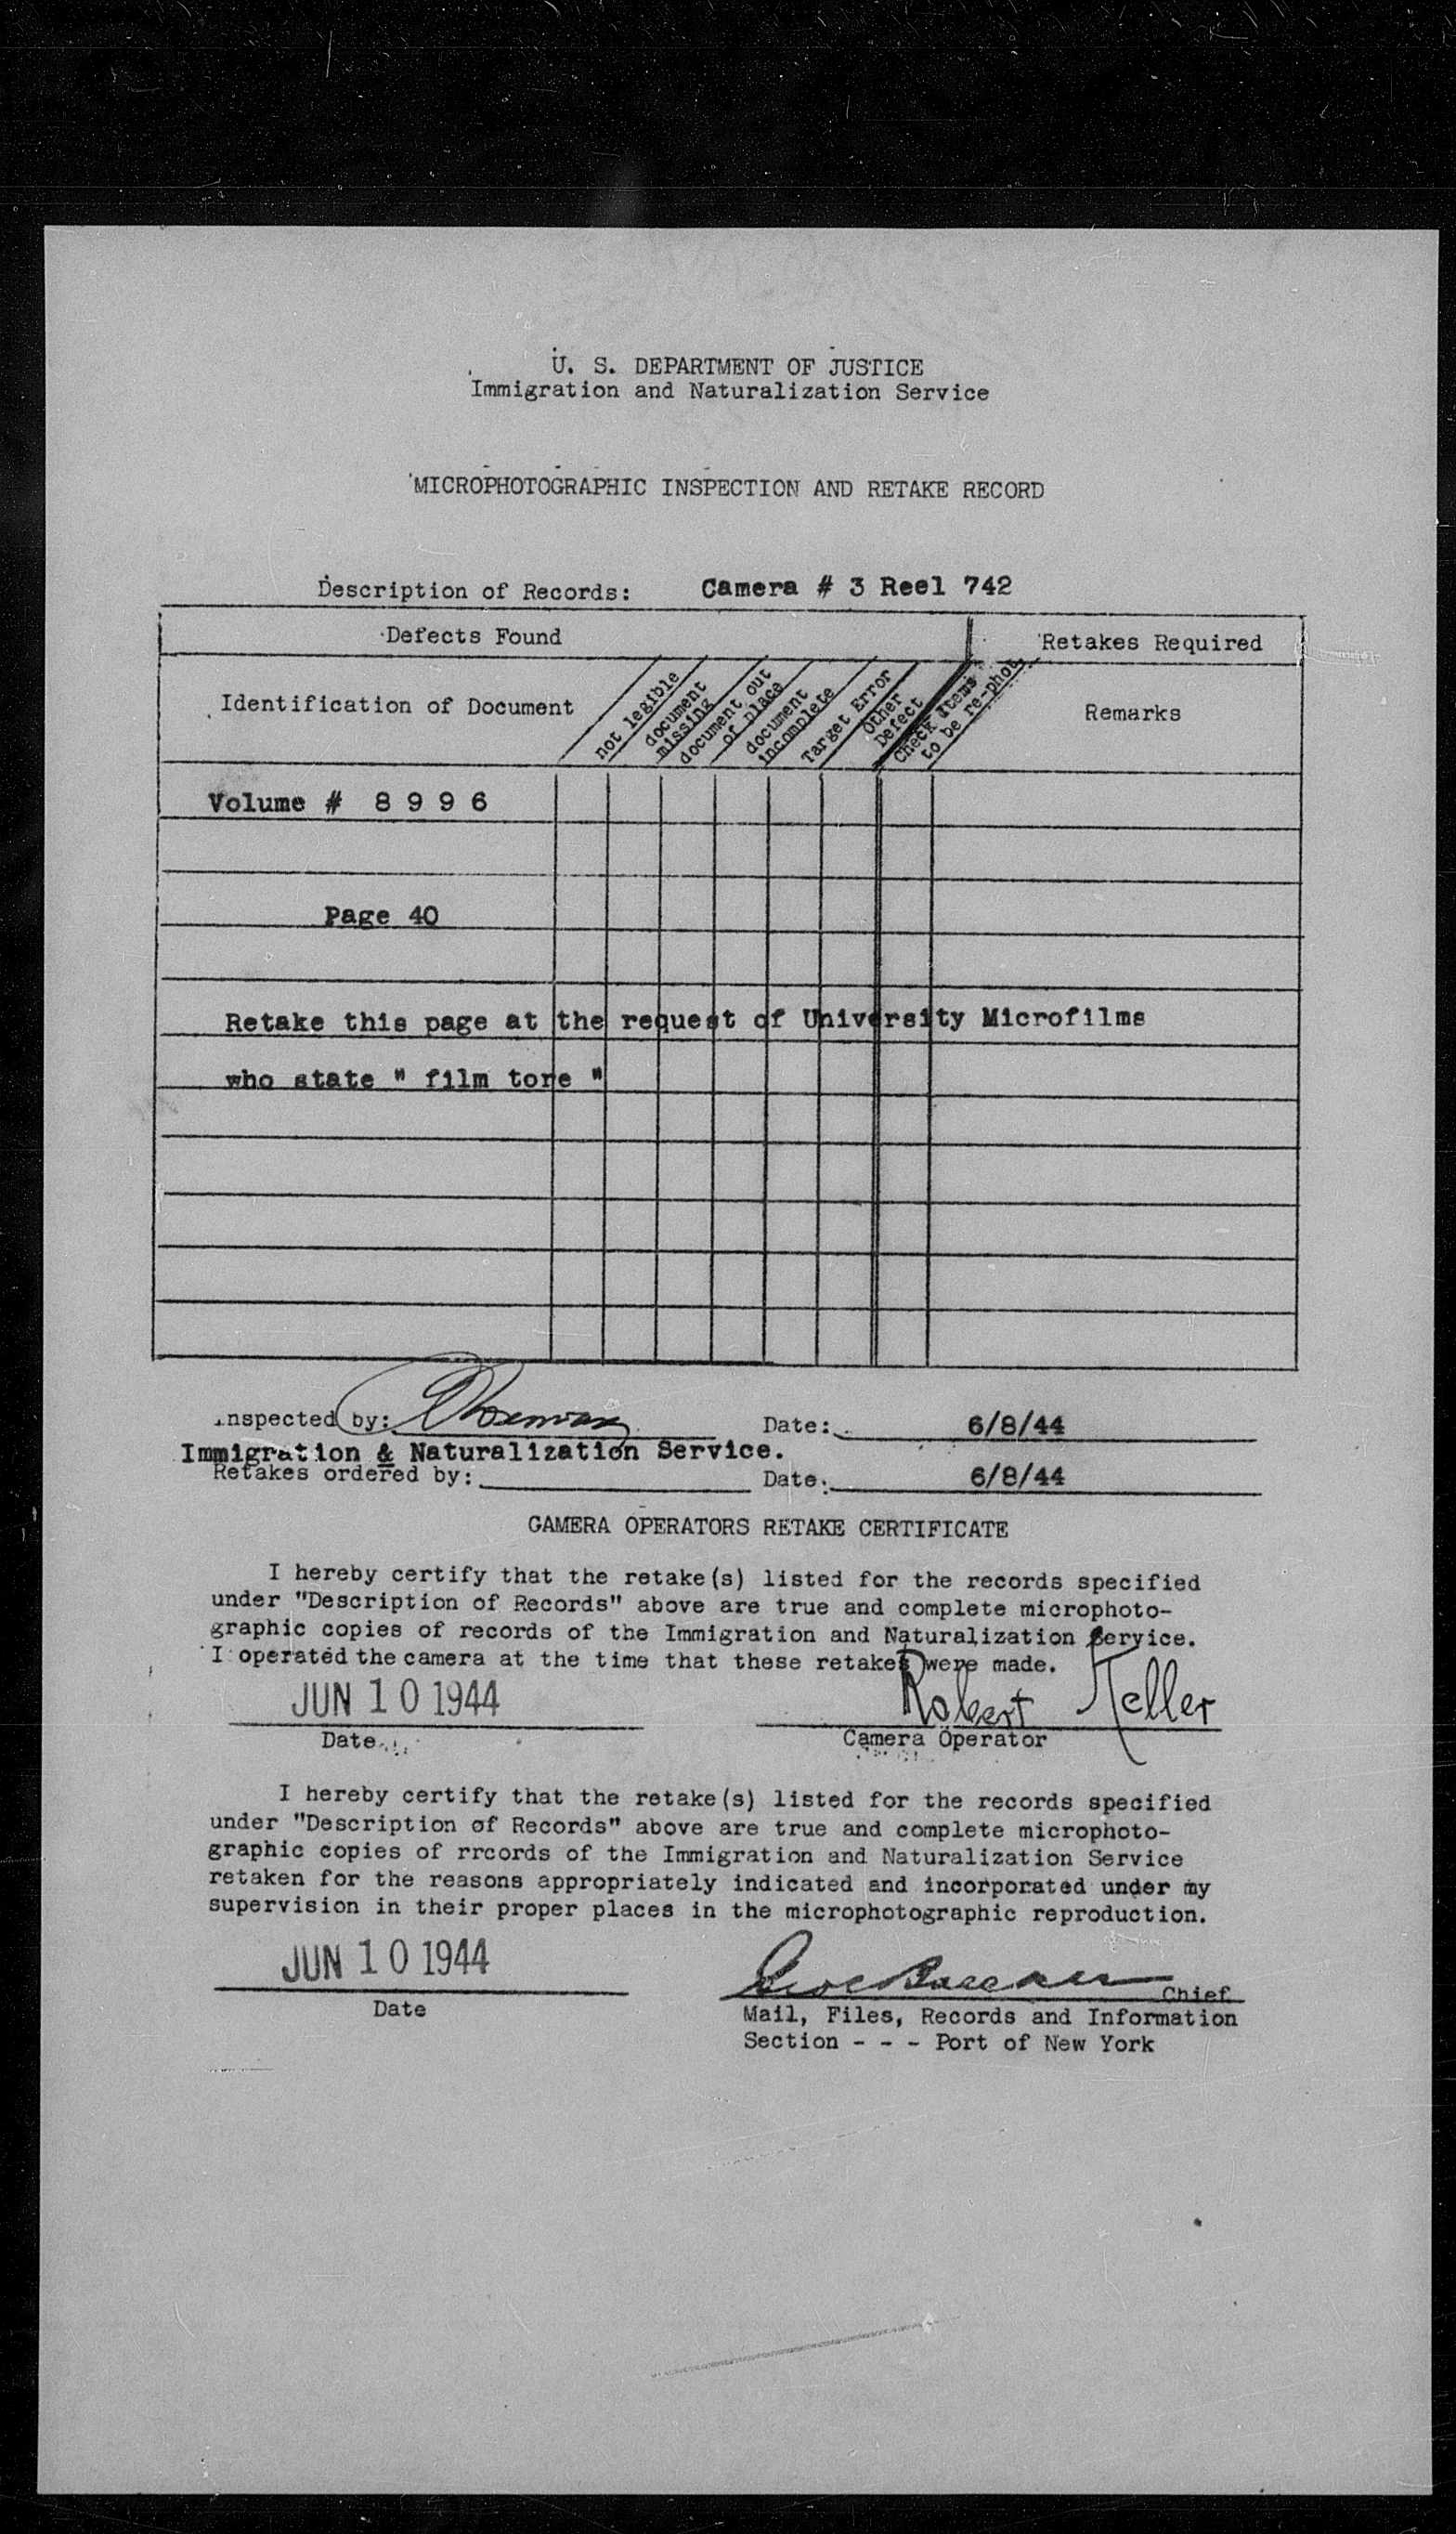 U. S. DEPARTMENT OF JUSTICE
Immigration and Naturalization Service
MICROPHOTOGRAPHIC INSPECTION AND RETAKE RECORD
Description of Records: Camera # 3 Reel 742
Defects Found
Retakes Required
Identification of Document
not legible
document
missing
document out
of place
document
incomplete
Target Error
Other
Defect
Check items
to be re-phot.
Remarks
Volume # 8 9 9 6
Page 40
Retake this page at the request of University Microfilms
who state " film tore "
Inspected by:
Date: 6/8/44
Immigration & Naturalization Service.
Retakes ordered by:
Date: 6/8/44
CAMERA OPERATORS RETAKE CERTIFICATE
I hereby certify that the retake(s) listed for the records specified
under "Description of Records" above are true and complete microphoto-
graphic copies of records of the Immigration and Naturalization Service.
I operated the camera at the time that these retakes were made.
JUN 10 1944
Robert Keller
Date
Camera Operator
I hereby certify that the retake(s) listed for the records specified
under "Description of Records" above are true and complete microphoto-
graphic copies of rrcords of the Immigration and Naturalization Service
retaken for the reasons appropriately indicated and incorporated under my
supervision in their proper places in the microphotographic reproduction.
JUN 10 1944
Chief
Date
Mail, Files, Records and Information
Section - - - Port of New York